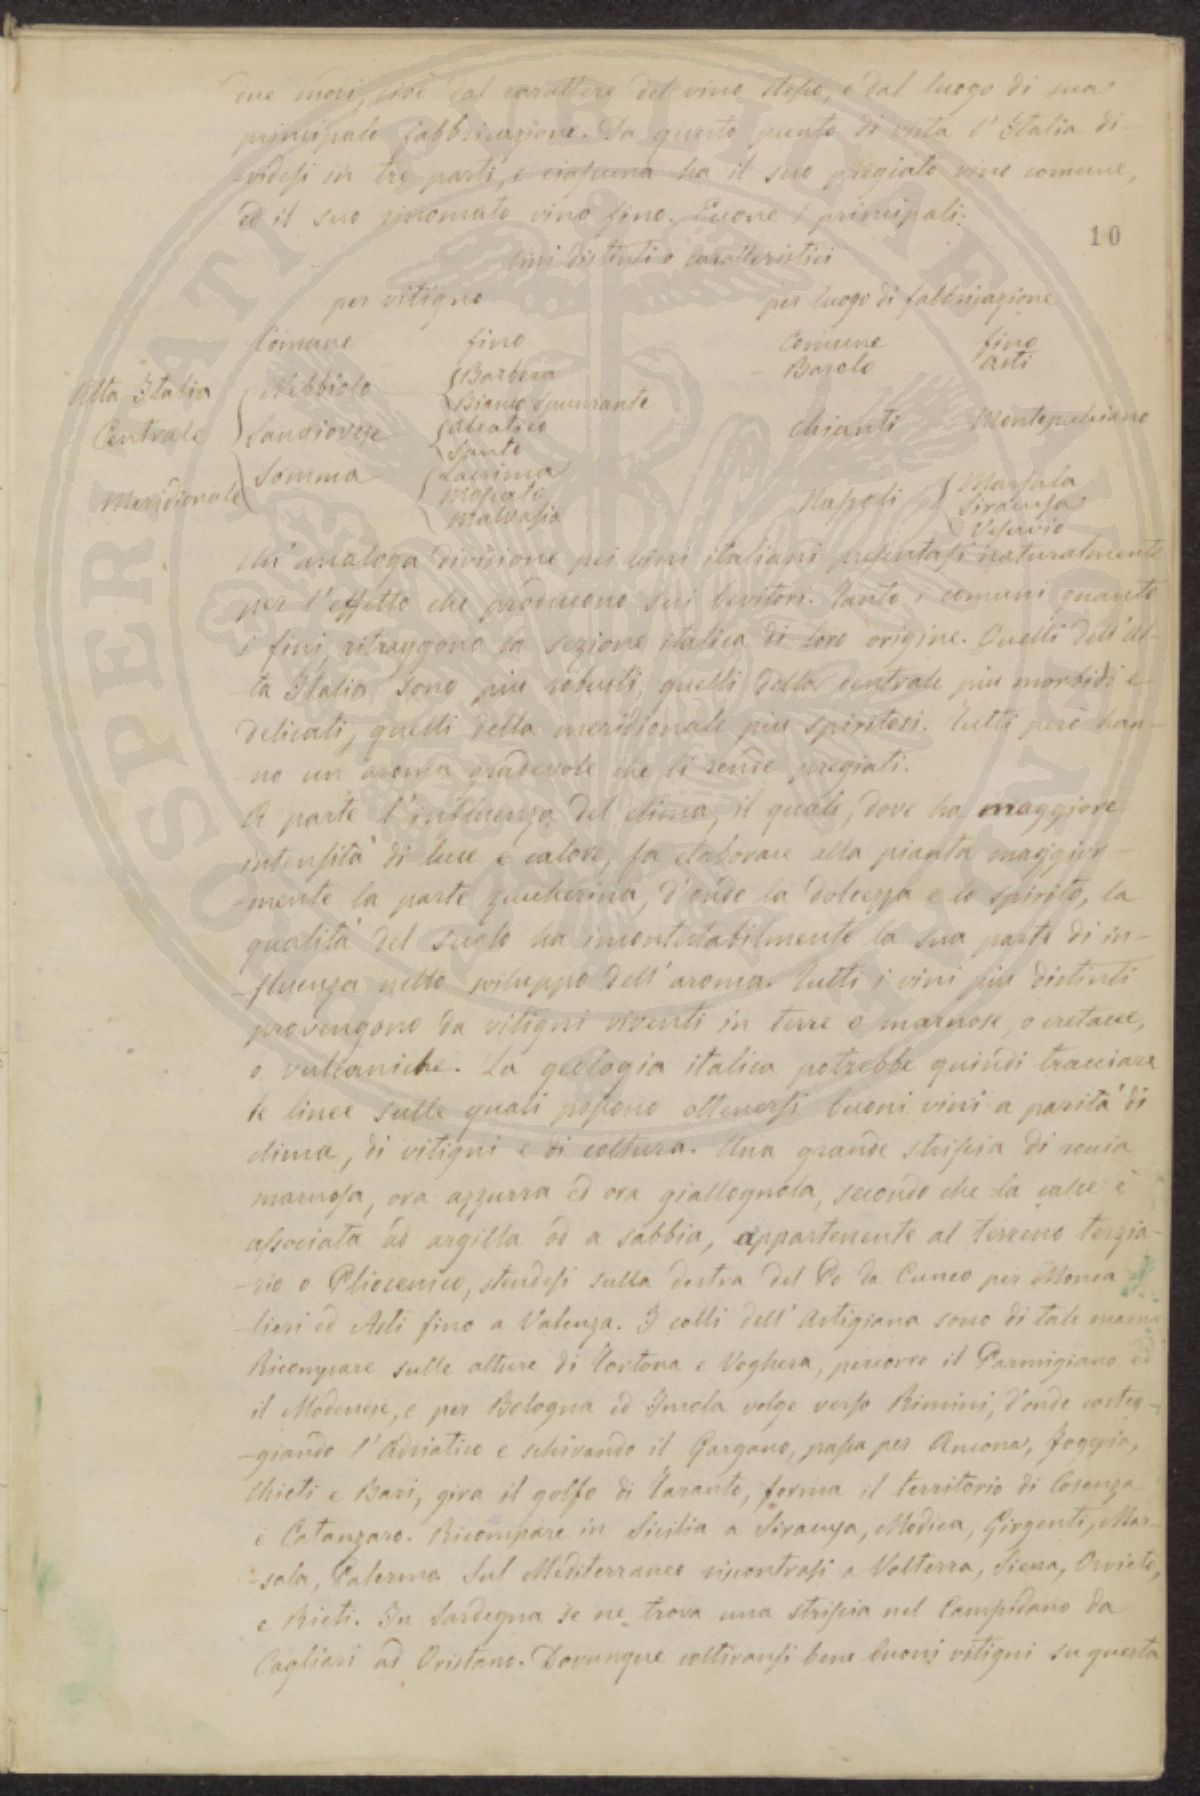 due modi, cioè dal carattere del vino stesso, e dal luogo di sua
principale fabbricazione. Da questo punto di vista l'Italia di-
-videsi in tre parti, e ciascuna ha il suo pregiato vino comune,
ed il suo rinomato vino fino. Eccone i principali:
10
Vini distinti o caratteristici
per vitigno per luogo di fabbricazione
Comune fino Comune fino
Alta Italia Nebbiolo Barbera Barolo Asti
Bianco spumante
Centrale Sangiovese Aleatico Chianti Montepulciano
Santo
Meridionale Somma Lacrima Napoli Marsala
Moscato Siracusa
Malvasia Vesuvio
Un'analoga divisione pei vini italiani presentasi naturalmente
per l'effetto che producono sui bevitori. Tanto i comuni quanto
i fini, ritraggono la sezione italica di loro origine. Quelli dell'Al-
ta Italia sono più robusti, quelli della centrale più morbidi e
delicati, quelli della meridionale più spiritosi. Tutti però han-
-no un aroma gradevole che li rende pregiati.
A parte l'influenza del clima, il quale, dove ha maggiore
intensità di luce e calore, fa elaborare alla pianta maggior-
-mente la parte zuccherina, d'onde la dolcezza e lo spirito, la
qualità del suolo ha incontestabilmente la sua parte di in-
-fluenza nello sviluppo dell'aroma. Tutti i vini più distinti
provengono da vitigni viventi in terre o marnose, o cretacee,
o vulcaniche. La geologia italica potrebbe quindi tracciare
le linee sulle quali possono ottenersi buoni vini a parità di
clima, di vitigni e di coltura. Una grande striscia di roccia
marnosa, ora azzurra ed ora giallognola, secondo che la calce è
associata ad argilla od a sabbia, appartenente al terreno terzia-
-rio o Pliocenico, stendesi sulla destra del Po da Cuneo per Monca
-lieri ed Asti fino a Valenza. I colli dell'Astigiana sono di tale marna
Ricompare sulle alture di Tortona e Voghera, percorre il Parmigiano ed
il Modenese, e per Bologna ed Imola volge verso Rimini, d'onde costeg-
-giando l'Adriatico e schivando il Gargano, passa per Ancona, Foggia,
Chieti e Bari, gira il golfo di Taranto, forma il territorio di Cosenza
e Catanzaro. Ricompare in Sicilia a Siracusa, Modica, Girgenti, Mar-
-sala, Palermo. Sul Mediterraneo riscontrasi a Volterra, Siena, Orvieto,
e Rieti. In Sardegna se ne trova una striscia nel Campidano da
Cagliari ad Oristano. Dovunque coltivansi bene buoni vitigni su questa